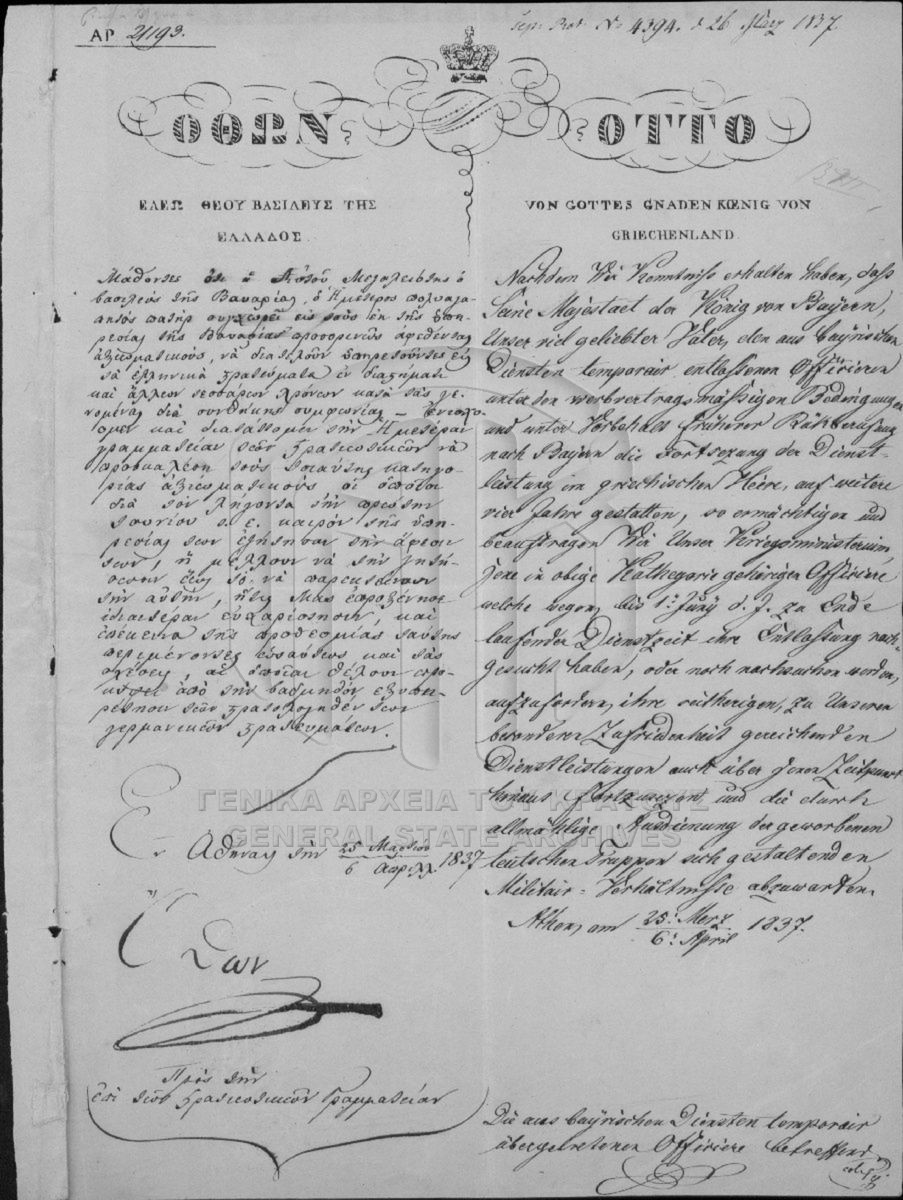 ΑΡ 21193.
Sep. Prot. No 4394. d 26 März 1837.
ΟΘΩΝ
ΕΛΕΩ ΘΕΟΥ ΒΑΣΙΛΕΥΣ ΤΗΣ
ΕΛΛΑΔΟΣ
Μαθόντες ὅτι ἡ Αὐτοῦ Μεγαλειότης ὁ
βασιλεὺς τῆς Βαυαρίας, ὁ Ἡμέτερος πολυαγα-
πητὸς πατὴρ συγχωρεῖ εἰς τοὺς ἐκ τῆς ὑπη-
ρεσίας τῆς Βαυαρίας προσωρινῶς ἀφεθέντας
ἀξιωματικούς, νὰ διατελοῦν ὑπηρετοῦντες εἰς
τὰ ἑλληνικὰ στρατεύματα ἐν διαστήματι
καὶ ἄλλων τεσσάρων χρόνων κατὰ τὰς γε-
νομένας διὰ συνθήκης συμφωνίας – Ἐντελλό-
μεθα καὶ διατάττομεν τὴν Ἡμετέραν
γραμματείαν τῶν Στρατιωτικῶν νὰ
προσκαλέσῃ τοὺς τοιαύτης κατηγο-
ρίας ἀξιωματικοὺς οἱ ὁποῖοι
διὰ τὸν λήγοντα τὴν πρώτην
Ἰουνίου ἐ. ἔ. καιρὸν τῆς ὑπη-
ρεσίας των ἐζήτησαν τὴν ἄφεσίν
των, ἢ μέλλουν νὰ τὴν ζητή-
σωσιν ἕως τὸ νὰ παρεκτείνουν
τὴν αὐτὴν, ἥτις Μᾶς ἐπροξένησε
ἰδιαιτέραν εὐχαρίστησιν, καὶ
ἐπέκεινα τῆς προθεσμίας ταύτης
περιμένοντες ὡσαύτως καὶ τὰς
σχέσεις, αἱ ὁποῖαι θέλουν προ-
κύψει ἀπὸ τὴν βαθμηδὸν ἐξυπη-
ρέτησιν τῶν στρατολογηθέντων
γερμανικῶν στρατευμάτων.
Ἐν Ἀθήναις τὴν 25 Μαρτίου / 6 Ἀπριλλ. 1837
Ὄθων
Πρὸς τὴν
ἐπὶ τῶν Στρατιωτικῶν Γραμματείαν
OTTO
VON GOTTES GNADEN KŒNIG VON
GRIECHENLAND
Nachdem Wir Kenntniß erhalten haben, daß
Seine Majestaet der König von Bayern,
Unser viel geliebter Vater, den aus bayrischen
Diensten temporair entlassenen Offizieren
unter den werbvertragsmässigen Bedingungen
und unter Vorbehalt früherer Rükberufung
nach Bayern die Fortsezung der Dienst-
leistung im griechischen Heere, auf weitere
vier Jahre gestatten, so ermächtigen und
beauftragen Wir Unser Kriegsministerium,
jene in obige Kathegorie gehörigen Offiziere
welche wegen, bis 1t Juny d. J. zu Ende
laufender Dienstzeit ihre Entlassung nach-
gesucht haben, oder noch nachsuchen werden,
aufzufordern, ihre seitherigen, zu Unserer
besonderer Zufriedenheit gereichenden
Dienstleistungen auch über jenen Zeitpunct
hinaus fortzusezen und die durch
allmählige Ausdienung der geworbenen
teutschen Truppen sich gestaltenden
Militair-Verhältnisse abzuwarten.
Athen, am 25t Merz / 6t April 1837.
Die aus bayrischen Diensten temporair
übergetretenen Offiziere betreffend
ΓΕΝΙΚΑ ΑΡΧΕΙΑ ΤΟΥ ΚΡΑΤΟΥΣ
GENERAL STATE ARCHIVES